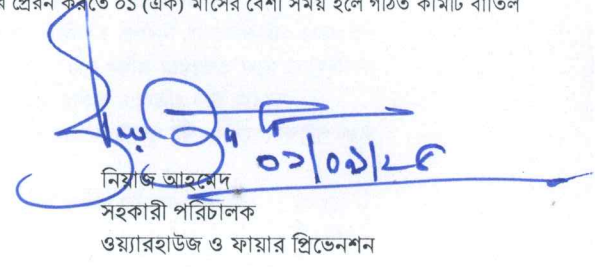 প্রেরন করতে ০১ (এক) মাসের বেশী সময় হলে গঠিত কমিটি বাতিল
নিয়াজ আহমেদ
সহকারী পরিচালক
ওয়্যারহাউজ ও ফায়ার প্রিভেনশন